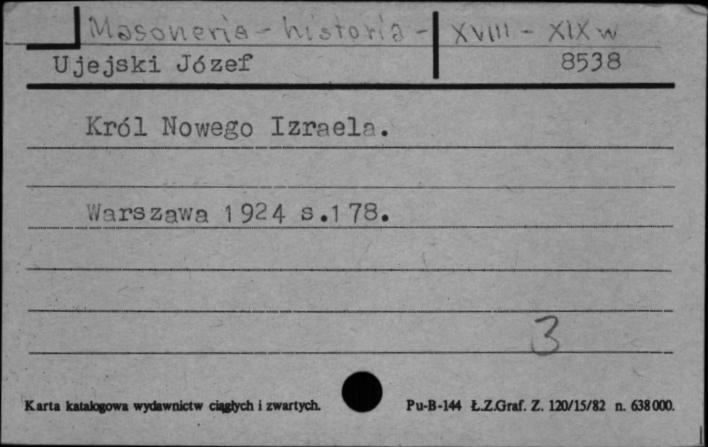 Masoneria - historia - XVIII - XIX w
Ujejski Józef 8538
Król Nowego Izraela.
Warszawa 1924 s.178.
3
Karta katalogowa wydawnictw ciągłych i zwartych. Pu-B-144 Ł.Z.Graf. Z. 120/15/82 n. 638000.